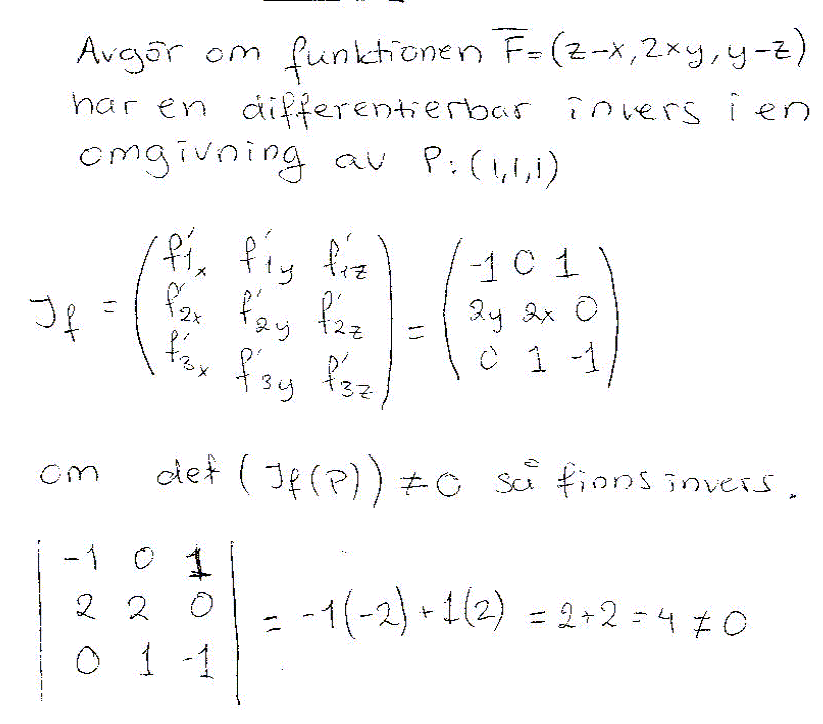 Avgör om funktionen F̅=(z-x,2xy,y-z)
har en differentierbar invers i en
omgivning av P:(1,1,1)
Jf = ( f1'x f1'y f1'z ) = ( -1 0 1 )
( f2'x f2'y f2'z ) ( 2y 2x 0 )
( f3'x f3'y f3'z ) ( 0 1 -1 )
om det (Jf(P)) ≠ 0 så finns invers.
| -1 0 1 |
| 2 2 0 | = -1(-2)+1(2) = 2+2=4 ≠ 0
| 0 1 -1 |